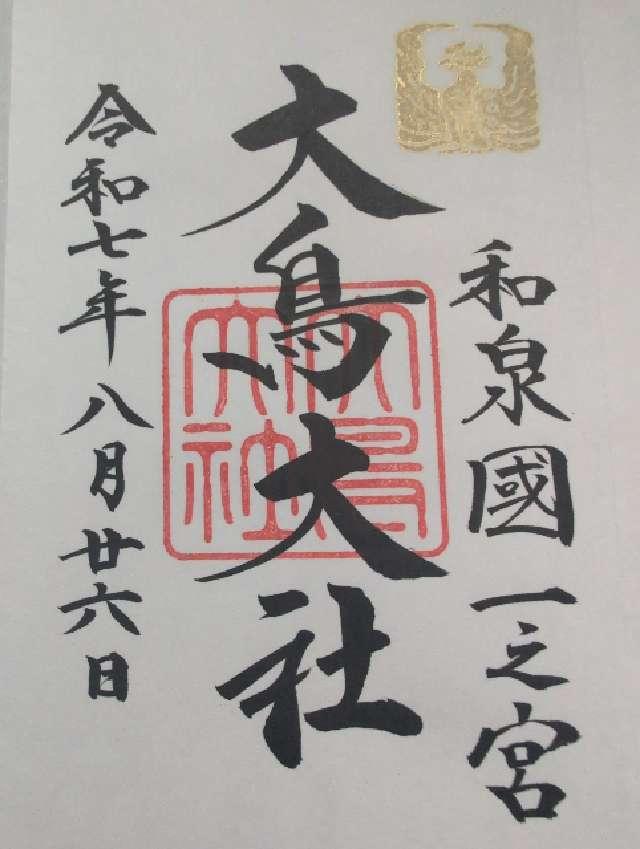 和泉國一之宮
大鳥大社
大鳥大社
令和七年八月廿六日